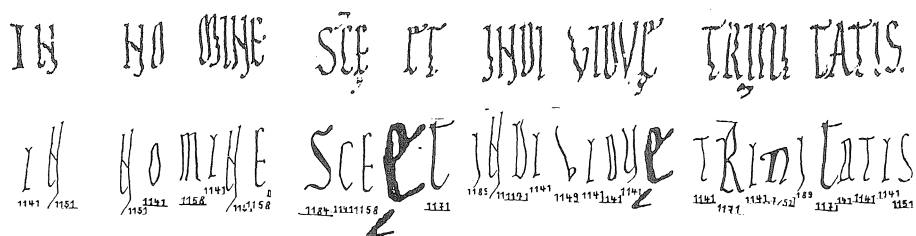 IN NOMINE SC̄Ę ET INDIVIDVĘ TRINITATIS
IN NOMINE SCE ET INDIVIDUE TRINITATIS
1141 1151 1151 1141 1158 1141 1184 1141 1158 1171 1185 1141 1149 1141 1141 1141 1141 1171 1141 1171 141 1141 1141 1151